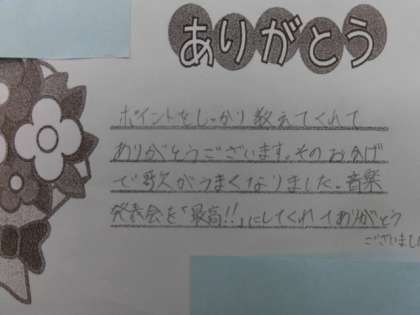 ありがとう
ポイントをしっかり教えてくれて
ありがとうございます。そのおかげ
で歌がうまくなりました。音楽
発表会を「最高!!」にしてくれてありがとう
ございました